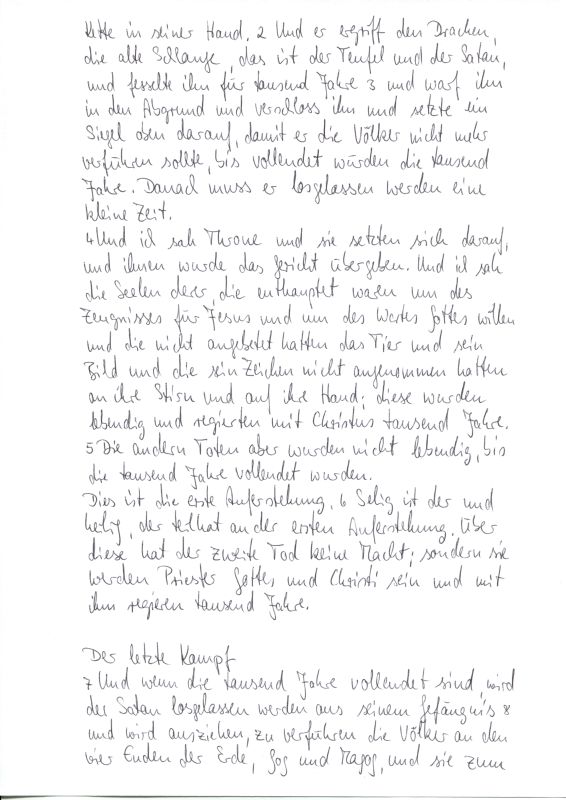 Kette in seiner Hand. 2 Und er ergriff den Drachen,
die alte Schlange, das ist der Teufel und der Satan,
und fesselte ihn für tausend Jahre 3 und warf ihn
in den Abgrund und verschloss ihn und setzte ein
Siegel oben darauf, damit er die Völker nicht mehr
verführen sollte, bis vollendet würden die tausend
Jahre. Danach muss er losgelassen werden eine
kleine Zeit.
4 Und ich sah Throne und sie setzten sich darauf,
und ihnen wurde das Gericht übergeben. Und ich sah
die Seelen derer, die enthauptet waren um des
Zeugnisses für Jesus und um des Wortes Gottes willen
und die nicht angebetet hatten das Tier und sein
Bild und die sein Zeichen nicht angenommen hatten
an ihre Stirn und auf ihre Hand; diese wurden
lebendig und regierten mit Christus tausend Jahre.
5 Die andern Toten aber wurden nicht lebendig, bis
die tausend Jahre vollendet wurden.
Dies ist die erste Auferstehung. 6 Selig ist der und
heilig, der teilhat an der ersten Auferstehung. Über
diese hat der zweite Tod keine Macht; sondern sie
werden Priester Gottes und Christi sein und mit
ihm regieren tausend Jahre.
Der letzte Kampf
7 Und wenn die tausend Jahre vollendet sind, wird
der Satan losgelassen werden aus seinem Gefängnis 8
und wird ausziehen, zu verführen die Völker an den
vier Enden der Erde, Gog und Magog, und sie zum